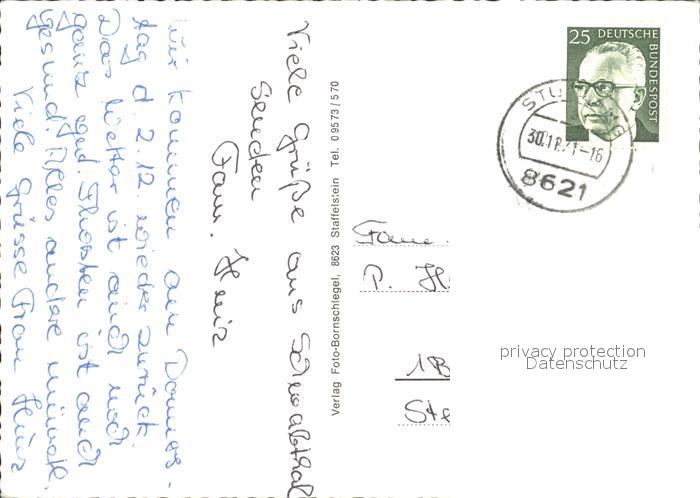 Viele Grüße aus Schwabthal
senden
Fam. Heinz
Wir kommen am Donners-
tag d. 2. 12. wieder zurück.
Das Wetter ist auch noch
ganz egal. Thorsten ist auch
gesund. Alles andere mündl.
Viele Grüsse Frau Heinz
Verlag Foto-Bornschlegel, 8623 Staffelstein Tel. 09573/570
25 DEUTSCHE
BUNDESPOST
30.11.71-16
8621
Fam.
P. H
1B
Ste
privacy protection
Datenschutz